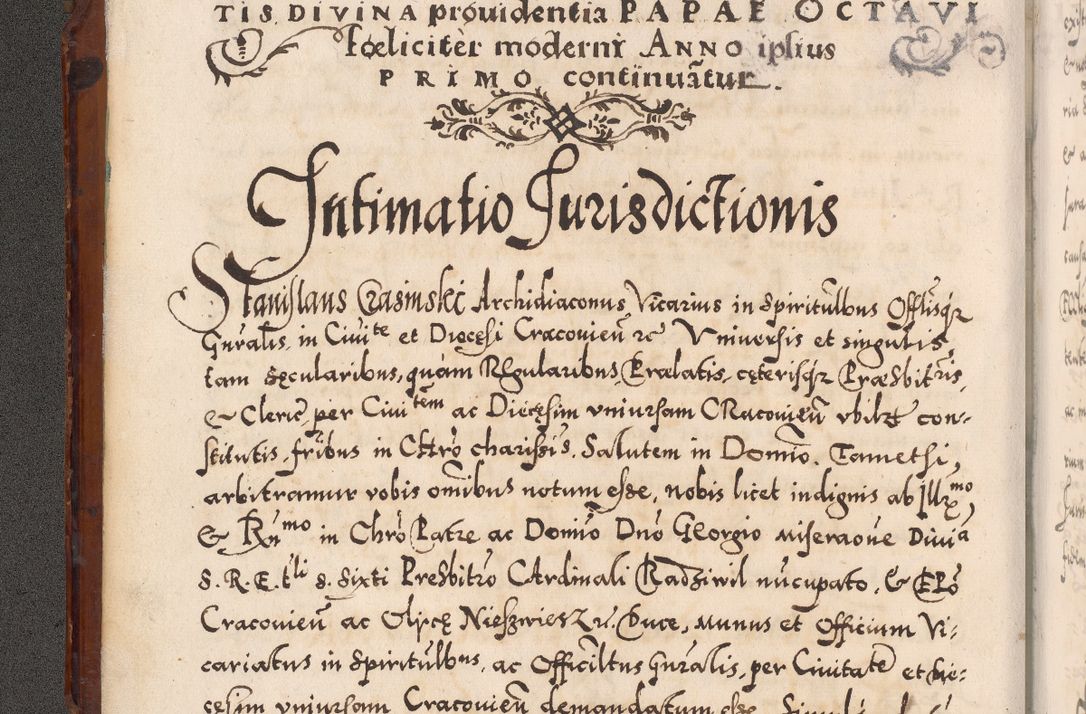 TIS DIVINA prouidentia PAPAE OCTAVI
fœliciter moderni ANNO ipsius
PRIMO continuãtur.
Intimatio Jurisdictionis
Stanislaus Crasinski Archidiaconus Vicarius in Spiritũlbus Offlisqz
Gñralis, in Ciuite et Diocęsi Cracouieñ zc Vniuersis et singulis
tam sęcularibus, quàm Rẽgularibus Prælatis, cęterisqz Præsbitris,
& Cleric, per Ciuitem ac Diecęsim vniuersam CRacouieñ vbilzt con-
stitutis, fribus in Chro charissis. Salutem in Domino. Tametsi,
arbitramur vobis omibus notum esse, nobis licet indignis ab Illmo
& Rnmo in Chro Patre ac Domio Dno Georgio miseraone Diuia
S. R. E. tli S. Sixti Presbitro CArdinali Radziwil nucupato, & EPo
Cracouieñ ac Olycę Nieszwiesz zc. Duce, munus et Officium Vi-
cariatus in Spiritũlbus, ac Officiltus Gñralis, per Ciuitate et Die-
cęsim vniuersam Cracouieñ demandatum esse